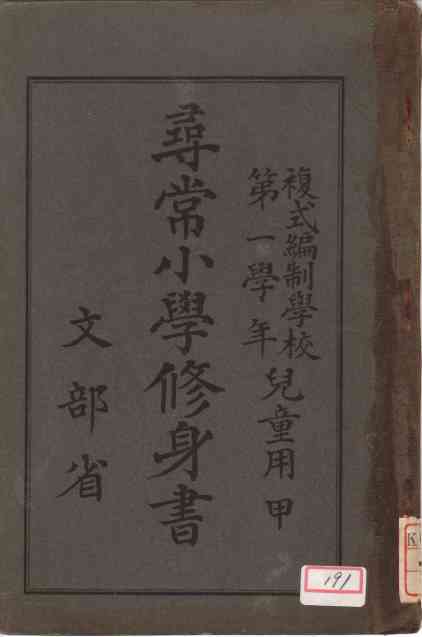 複式編制學校
第一學年
兒童用 甲
尋常小學修身書
文部省
191
K